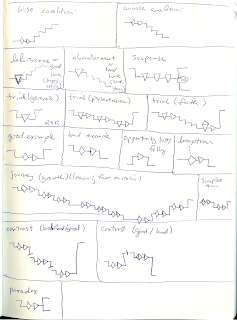 wise coalition
unwise coalition
deliverance or
good
luck
abandonment
or bad
luck
suspense
trial (general)
trial (perseverance)
trial (faith)
good example
bad example
opportunity lost/
folly
temptation
journey (growth) (learning from mistakes)
simpler
contrast (bad/good)
contrast (good/bad)
paradox